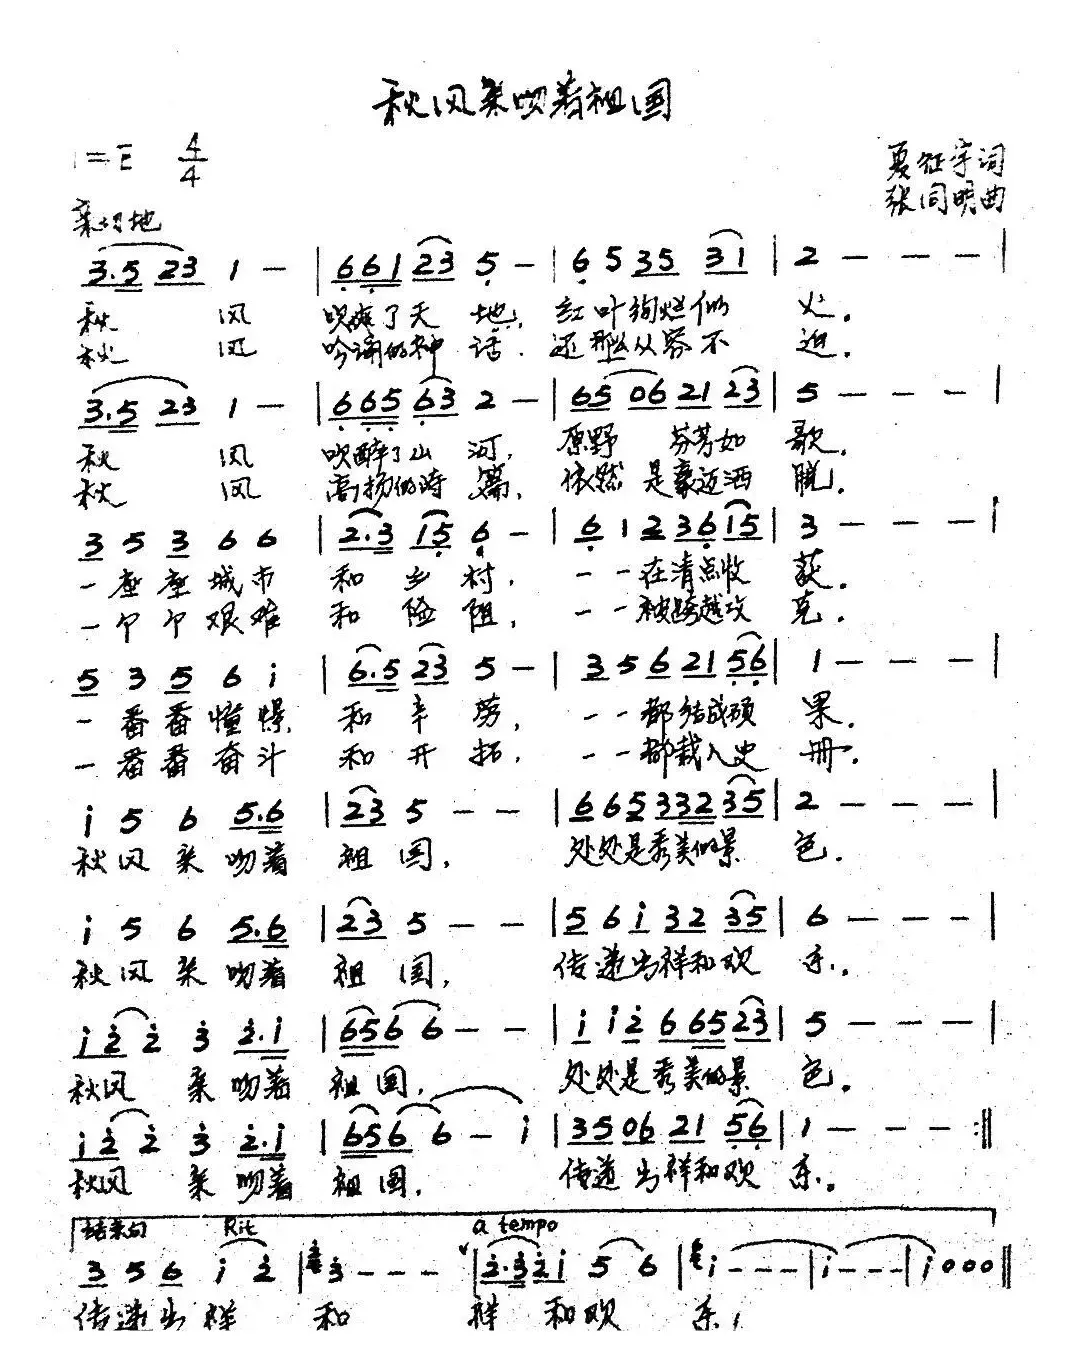 秋风亲吻着祖国
1=E 4/4
夏征宇词
张同明曲
亲切地
3.5 23 1 - | 661 23 5 - | 6 5 35 31 | 2 - - - |
秋 风 吹爽了天 地, 红叶绚烂似 火.
秋 风 吟诵的神 话. 还那么从容不 迫.
3.5 23 1 - | 665 63 2 - | 65 06 21 23 | 5 - - - |
秋 风 吹醉了山 河, 原野 芬芳如 歌.
秋 风 高扬的诗 篇, 依然 是豪迈洒 脱.
3 5 3 6 6 | 2.3 15 6 - | 6 1 2 36 15 | 3 - - - |
一座座城市 和乡村, 一一在清点收 获.
一个个艰难 和险阻, 一一被跨越攻 克.
5 3 5 6 i | 6.5 23 5 - | 3 5 6 21 56 | 1 - - - |
一番番憧憬, 和辛劳, 一一都结成硕 果.
一番番奋斗 和开拓, 一一都载入史 册.
i 5 6 5.6 | 23 5 - - | 6 65 332 35 | 2 - - - |
秋风亲吻着 祖国, 处处是秀美的景 色.
i 5 6 5.6 | 23 5 - - | 5 6 i 32 35 | 6 - - - |
秋风亲吻着 祖国, 传递出祥和欢 乐.
i 2 2 3 2.i | 656 6 - - | i i 2 6 65 23 | 5 - - - |
秋风 亲吻着 祖国, 处处是秀美的景 色.
i 2 2 3 2.i | 656 6 - i | 35 06 21 56 | 1 - - - :||
秋风 亲吻着 祖国, 传递出祥和欢 乐.
结束句 Rit a tempo
3 5 6 i 2 | 3 - - - | 2.3 2i 5 6 | i - - - | i - - - | i 0 0 0 ||
传递出祥 和 祥和欢 乐,